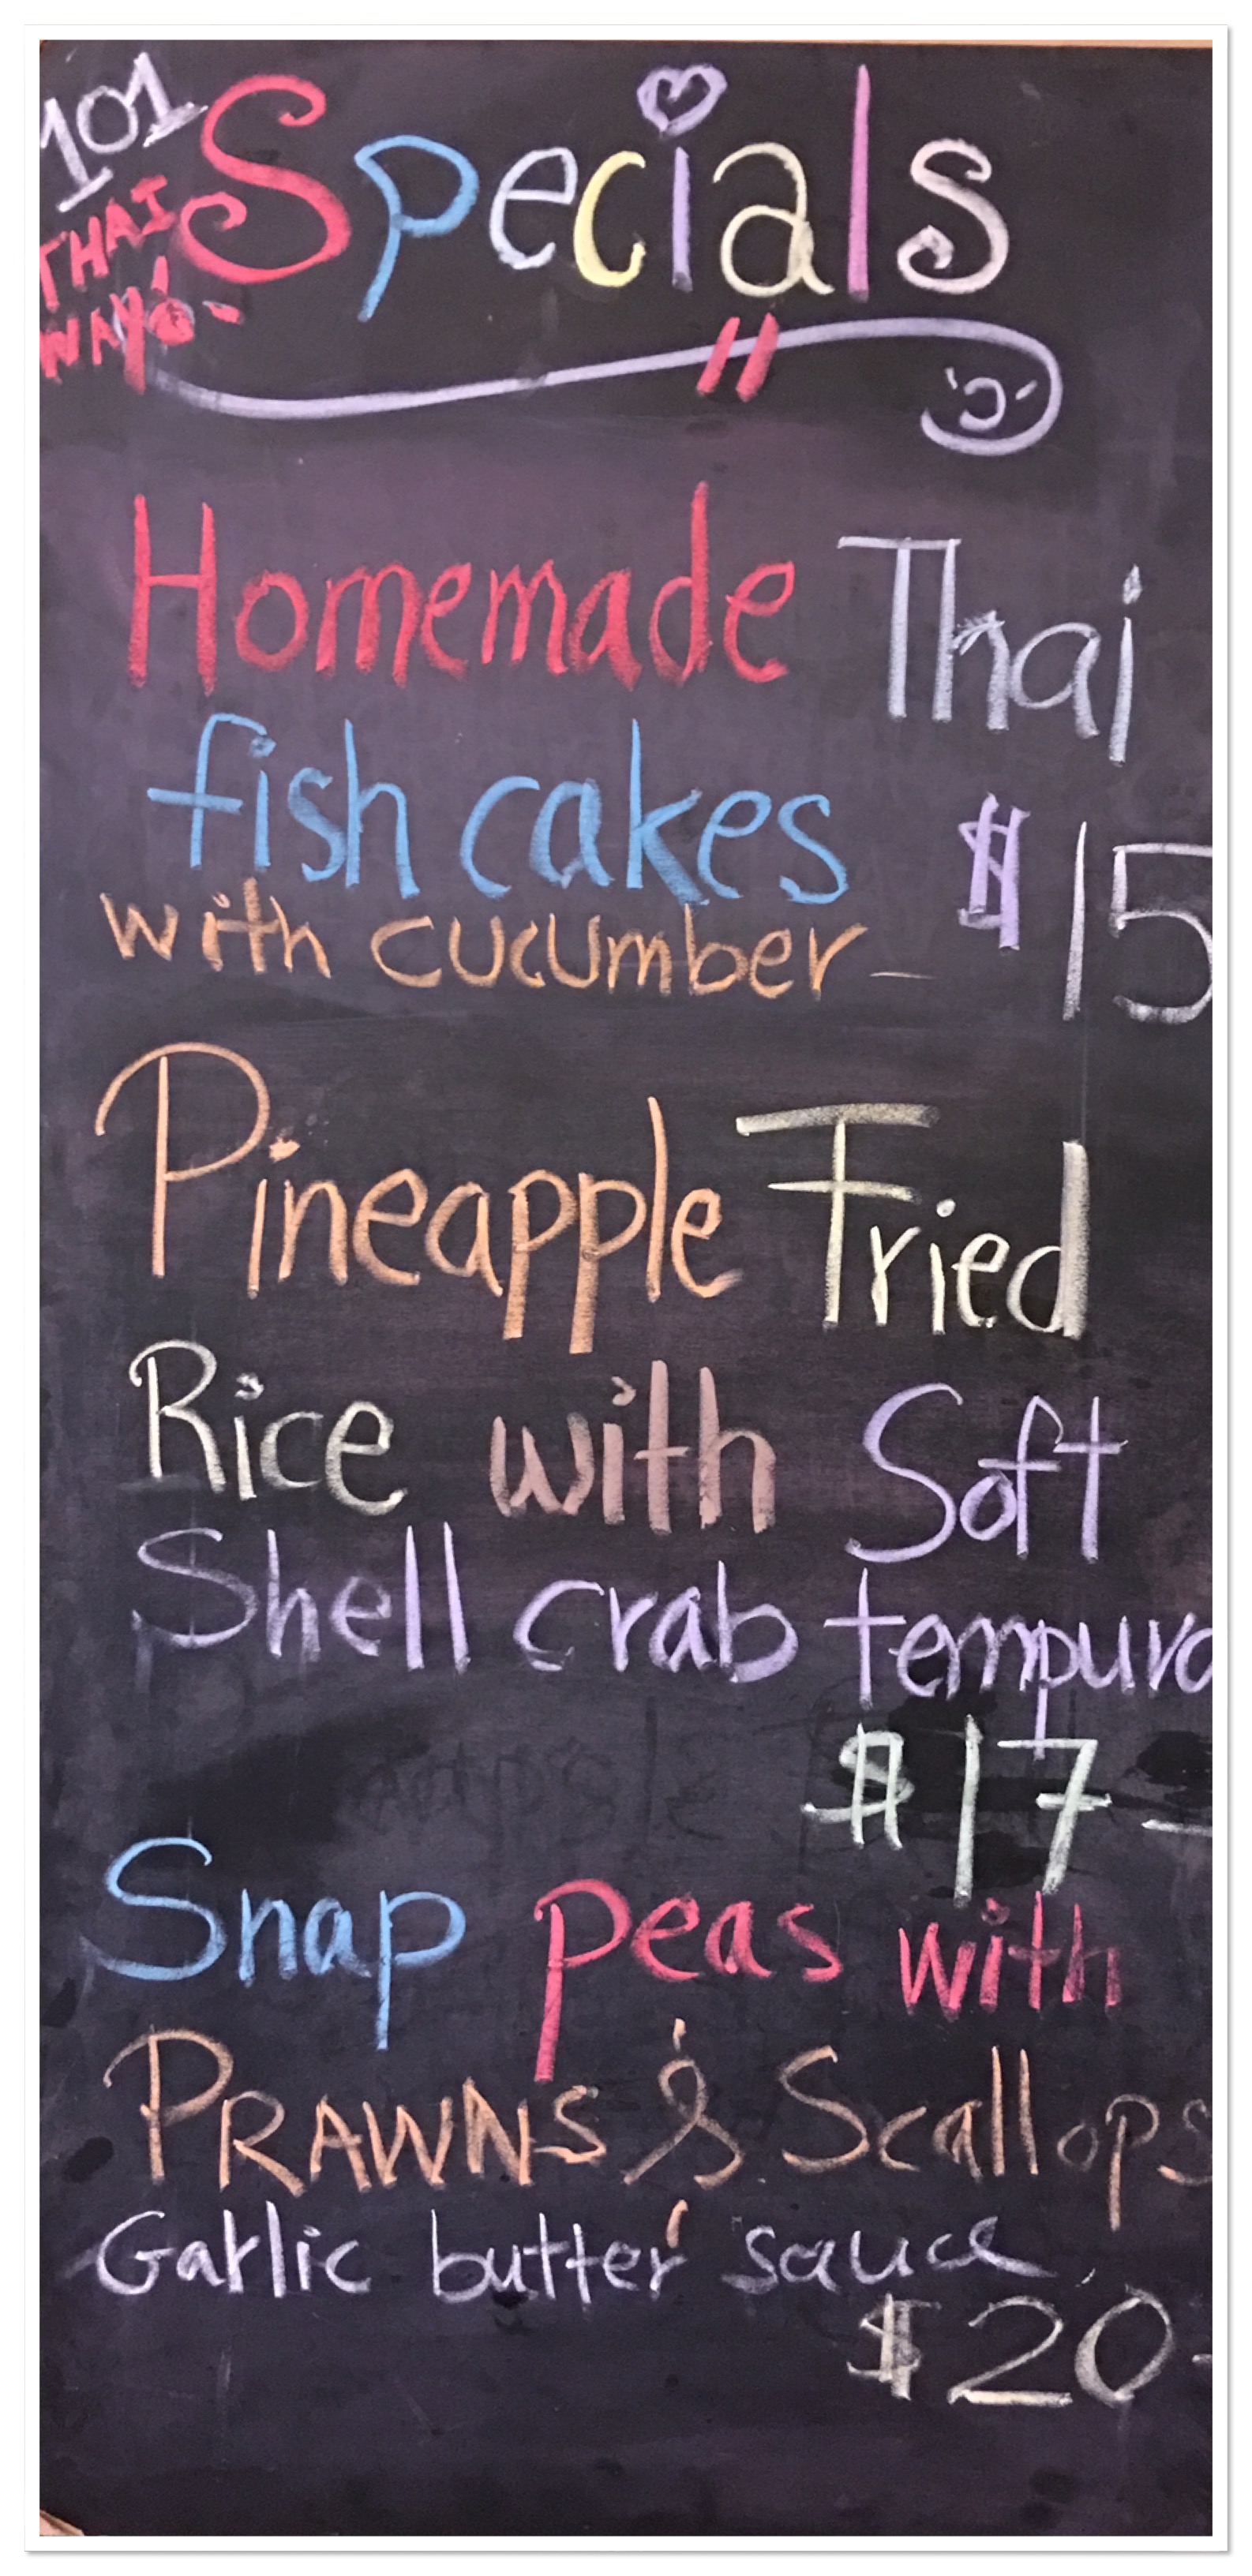 101
THAI
WAY!
Specials
Homemade Thai
fish cakes
with cucumber - $15
Pineapple Fried
Rice with Soft
Shell crab tempura
$17-
Snap peas with
PRAWNS & Scallops
Garlic butter sauce.
$20-